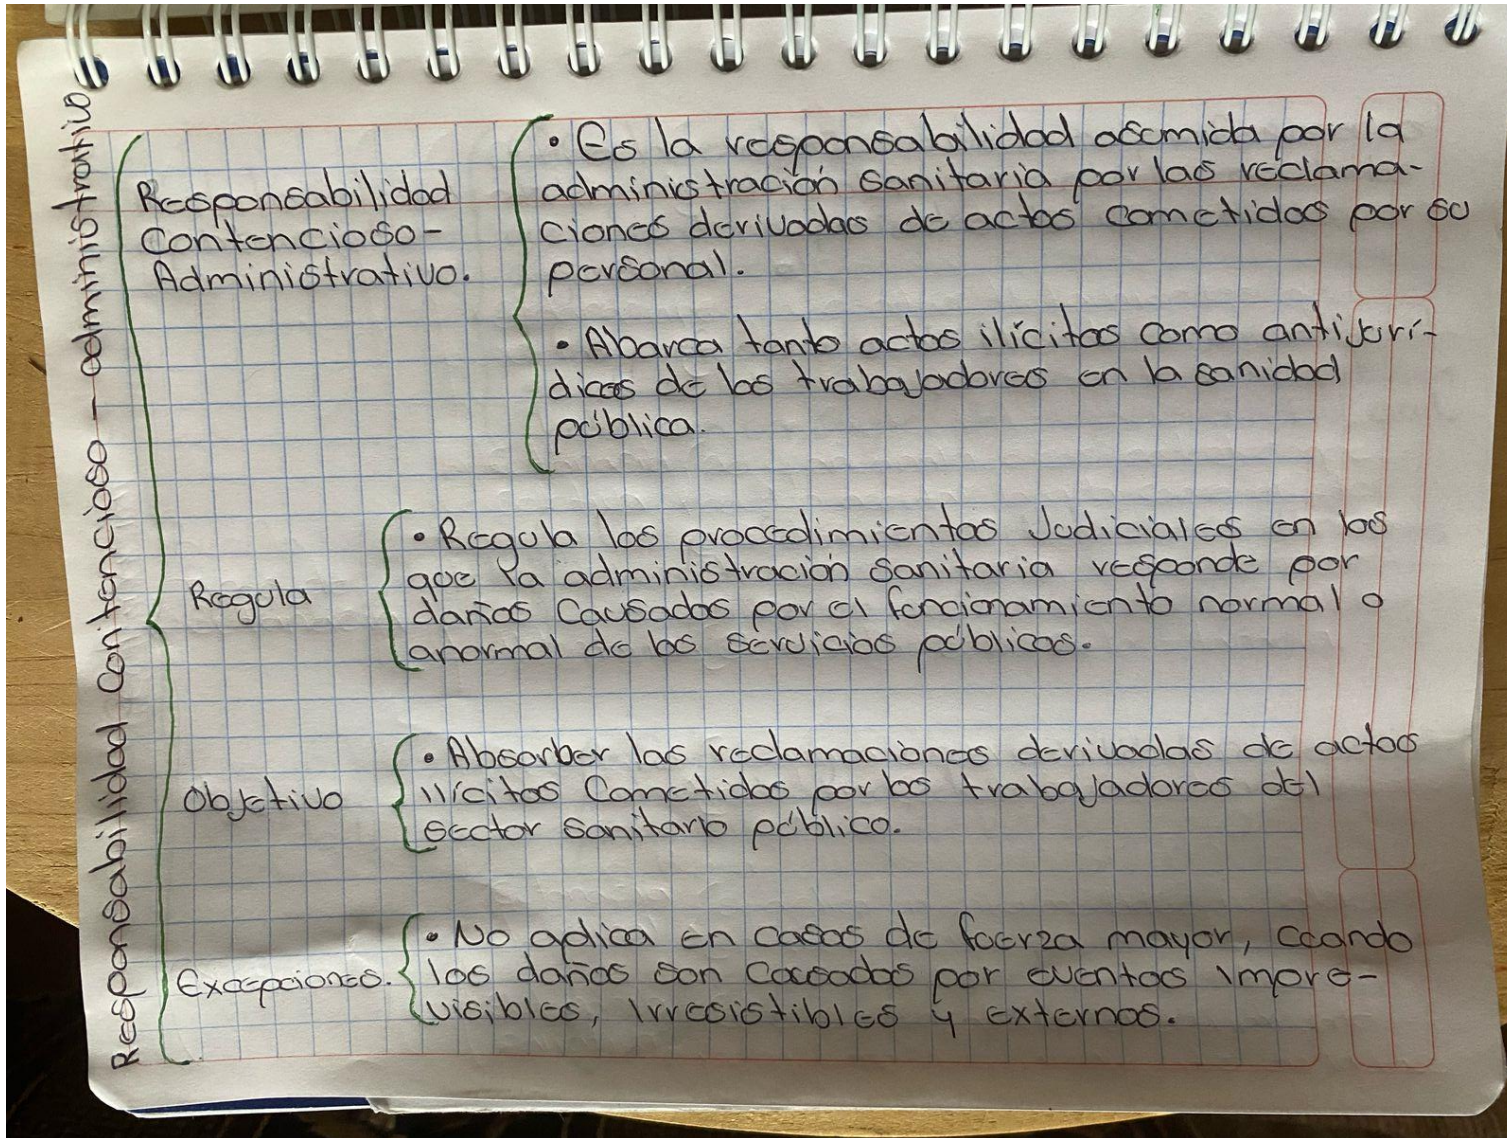 Responsabilidad Contencioso - administrativo
Responsabilidad
Contencioso-
Administrativo.
• Es la responsabilidad asumida por la
administración sanitaria por las reclama-
ciones derivadas de actos cometidos por su
personal.
• Abarca tanto actos ilícitos como antijurí-
dicos de los trabajadores en la sanidad
pública.
Regula
• Regula los procedimientos Judiciales en los
que la administración sanitaria responde por
daños Causados por el funcionamiento normal o
anormal de los servicios públicos.
Objetivo
• Absorber las reclamaciones derivadas de actos
ilícitos Cometidos por los trabajadores del
sector sanitario público.
Excepciones.
• No aplica en casos de fuerza mayor, cuando
los daños son causados por eventos impre-
visibles, irresistibles y externos.